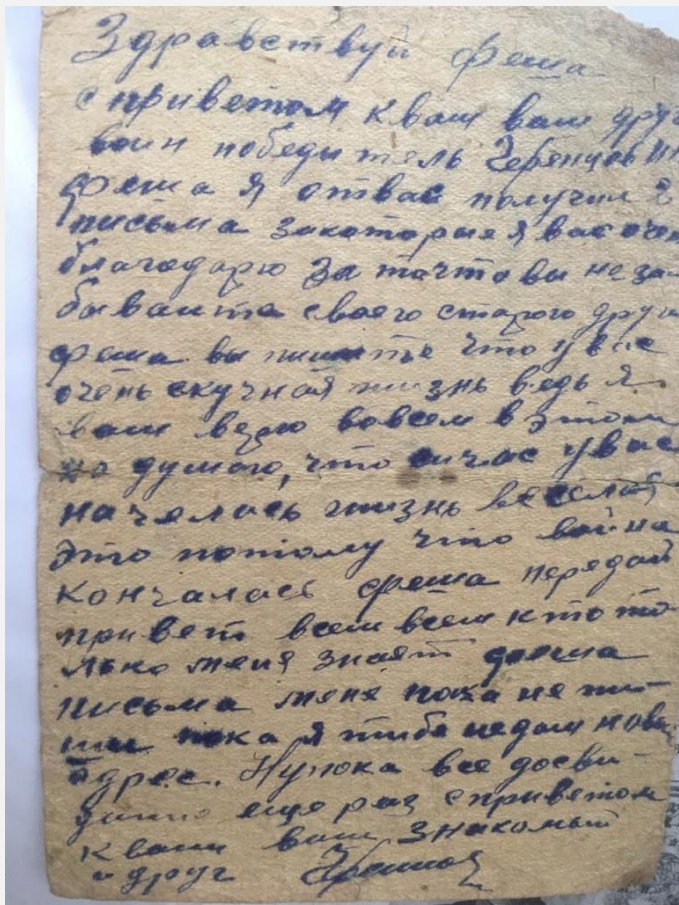 Здравствуй феша
с приветом квам ваш друг
воин победитель
феша я отвас получил 2
письма закоторые я вас оче
благодарю За точто вы неза
бываите своего старого друга
феша вы пишите что увас
очень скучная жизнь ведь я
вам верю вовсем вэтом
но думаю, что сичас увас
началась жизнь веселая
это потому что война
кончалась феша передай
привет всем всем кто то
лько меня знает феша
письма мене пока не пи
ши пока я тибе недам новы
адрес. Нупока все досви-
дание еще раз сприветом
квам ваш знакомый
и друг